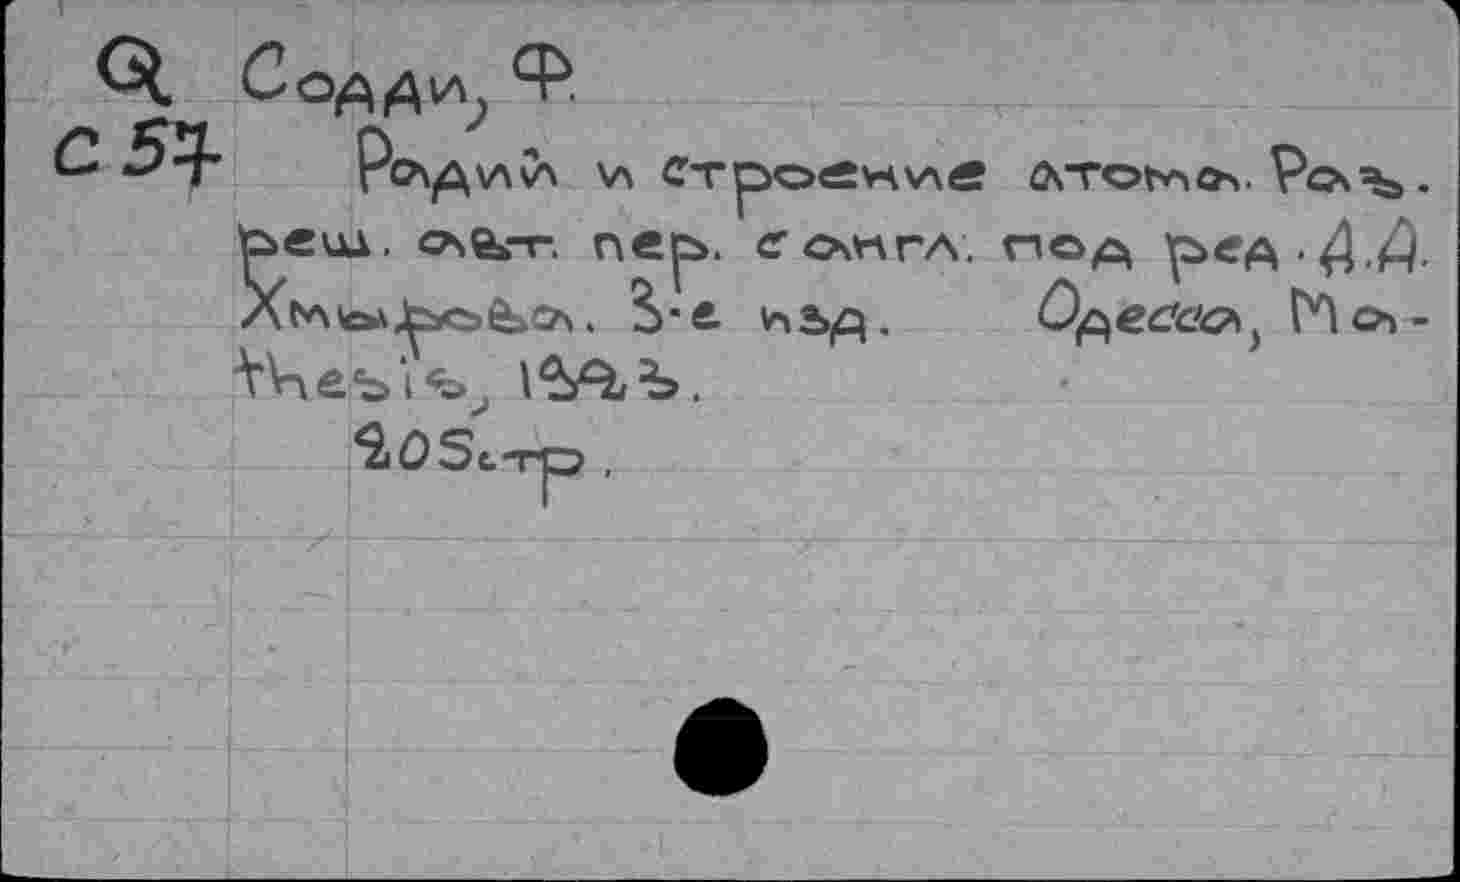 Q Содди, Ф.
С 57 Радий и строение атома. Раз.
реш. авт. пер. с англ. под ред. Д.Д.
Хмырова. 3-е изд. Одесса, Ма-
тезіз, 1923.
205 стр.